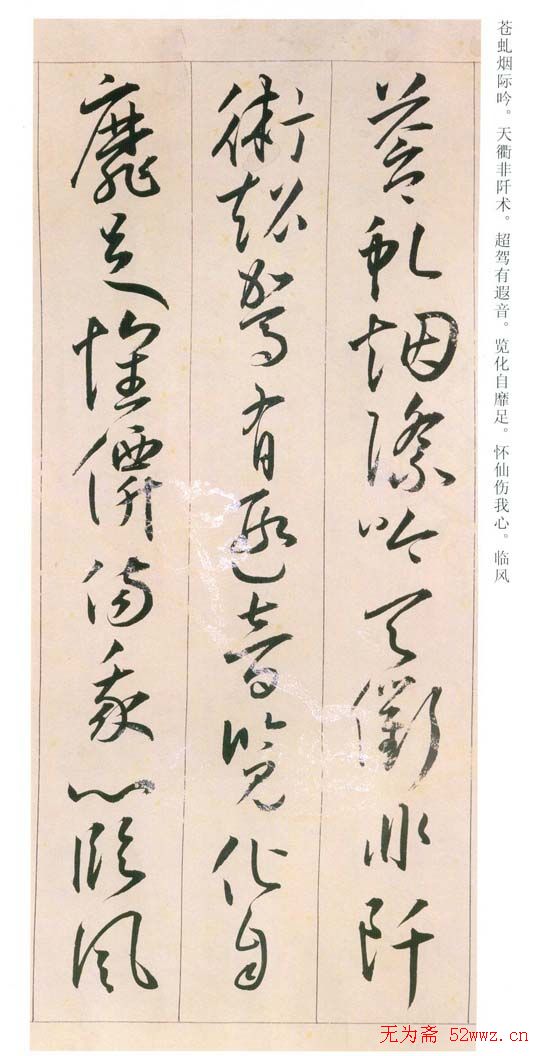 蒼虬烟際吟天衢非阡
術超駕有遐音覽化自
靡足懷僊傷我心臨風
苍虬烟际吟。天衢非阡术。超驾有遐音。览化自靡足。怀仙伤我心。临风
无为斋 52wwz.cn